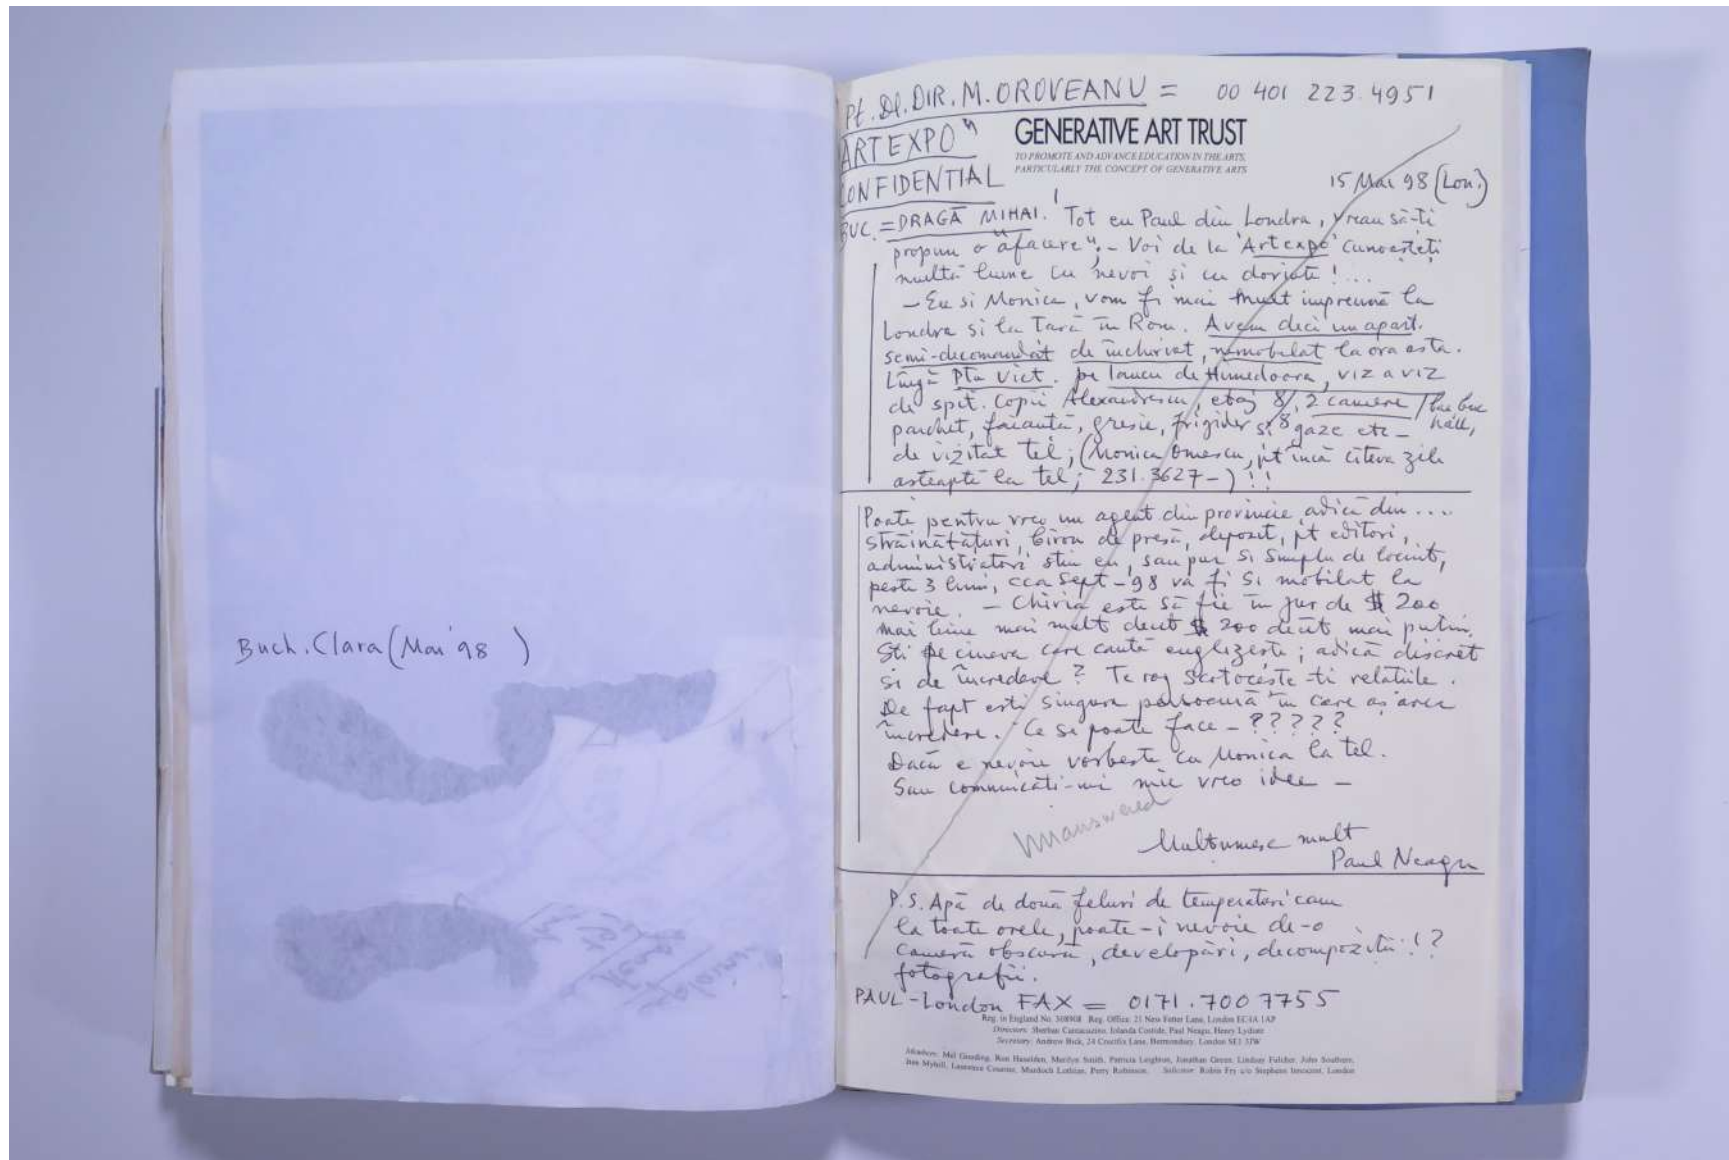 Buch. Clara (Mai '98 )
Pt. Dl. DIR. M. OROVEANU = 00 401 223.4951
ARTEXPO"
CONFIDENTIAL
GENERATIVE ART TRUST
TO PROMOTE AND ADVANCE EDUCATION IN THE ARTS,
PARTICULARLY THE CONCEPT OF GENERATIVE ARTS
15 Mai 98 (Lon.)
BUC. = DRAGĂ MIHAI! Tot eu Paul din Londra, vreau să-ți
propun o "afacere"; - Voi de la 'Artexpo' cunoașteți
multă lume cu nevoi și cu dorințe! ...
- Eu si Monica, vom fi mai mult impreună la
Londra si la Țară în Rom. Avem deci un apart.
semi-decomandat de închiriat, nemobilat la ora asta.
Lîngă Pța Vict. pe Iancu de Hunedoara, viz a viz
de spit. copii Alexandrescu, etaj 8, 2 camere /
hall,
parchet, faianță, gresie, frigider și gaze etc -
de vizitat tel; (Monica Omescu, pt încă cîteva zile
asteaptă la tel; 231.3627-) !!
Poate pentru vreo un agent din provincie, adică din ....
străinătățuri, birou de presă, depozit, pt editori,
administratori stiu eu, sau pur si simplu de locuit,
peste 3 luni, cca Sept-98 va fi si mobilat la
nevoie. - Chiria este să fie în jur de $ 200
mai bine mai mult decît $ 200 decît mai putin.
Sti pe cineva care caută englezește; adică discret
si de încredere? Te rog scotocește-ti relatiile.
De fapt esti singura persoană în care aș avea
încredere. Ce se poate face - ?????
Dacă e nevoie vorbeste cu Monica la tel.
Sau comunicati-mi mie vreo idee -
Unanswered
Multumesc mult
Paul Neagu
P.S. Apă de două feluri de temperaturi cam
la toate orele, poate-i nevoie de-o
cameră obscură, developări, decompoziții !?
fotografii.
PAUL-London FAX = 0171.700 7755
Reg. in England No. Reg. Office: 21 New Fetter Lane, London EC4A 1AP
Directors: Sherban Cantacuzino, Iolanda Costide, Paul Neagu, Henry Lydiate
Secretary: Andrew Bick, 24 Crucifix Lane, Bermondsey, London SE1 3JW
Members: Mel Gooding, Ron Haselden, Marilyn Smith, Patricia Leighton, Jonathan Green, Lindsay Fulcher, John Southern,
Jean Myhill, Laurence Coussins, Murdoch Lothian, Perry Robinson. Solicitor: Robin Fry c/o Stephens Innocent, London